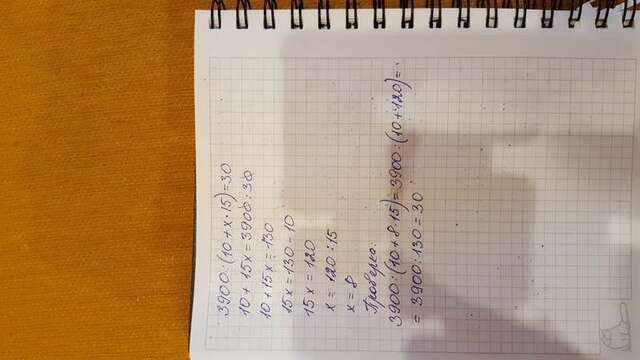 3900:(10+x·15)=30
10+15x=3900:30
10+15x=130
15x=130-10
15x=120
x=120:15
x=8
Проверка:
3900:(10+8·15)=3900:(10+120)=
=3900:130=30